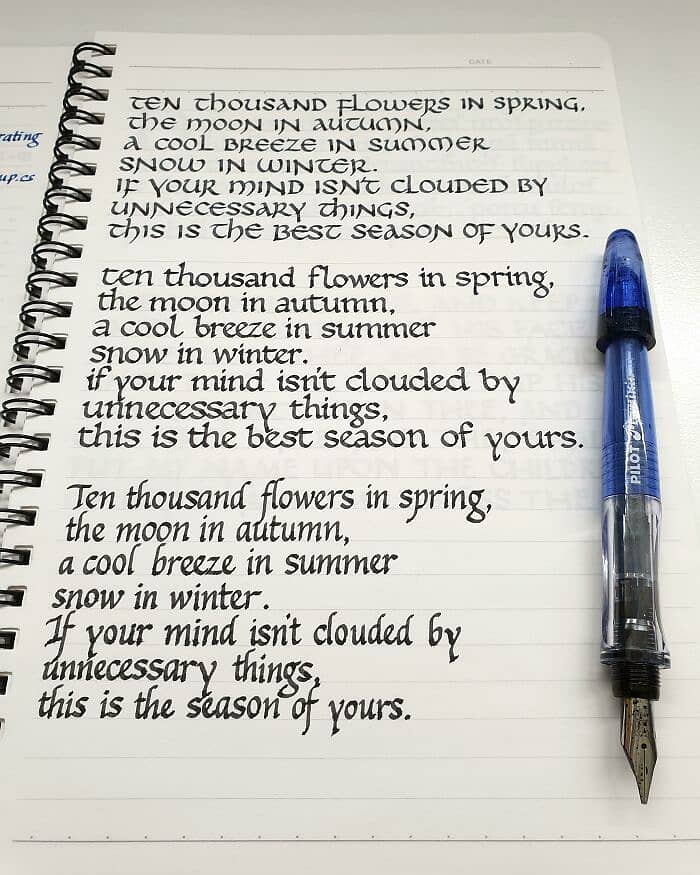 rating
up.cs
DATE
TEN THOUSAND FLOWERS IN SPRING,
THE MOON IN AUTUMN,
A COOL BREEZE IN SUMMER
SNOW IN WINTER.
IF YOUR MIND ISN'T CLOUDED BY
UNNECESSARY THINGS,
THIS IS THE BEST SEASON OF YOURS.
ten thousand flowers in spring,
the moon in autumn,
a cool breeze in summer
snow in winter.
if your mind isn't clouded by
unnecessary things,
this is the best season of yours.
Ten thousand flowers in spring,
the moon in autumn,
a cool breeze in summer
snow in winter.
If your mind isn't clouded by
unnecessary things,
this is the season of yours.
PILOT